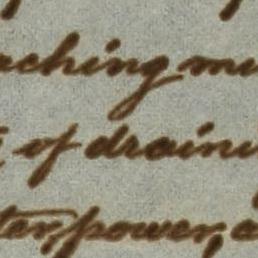 aching mu
of draini
ter power, a